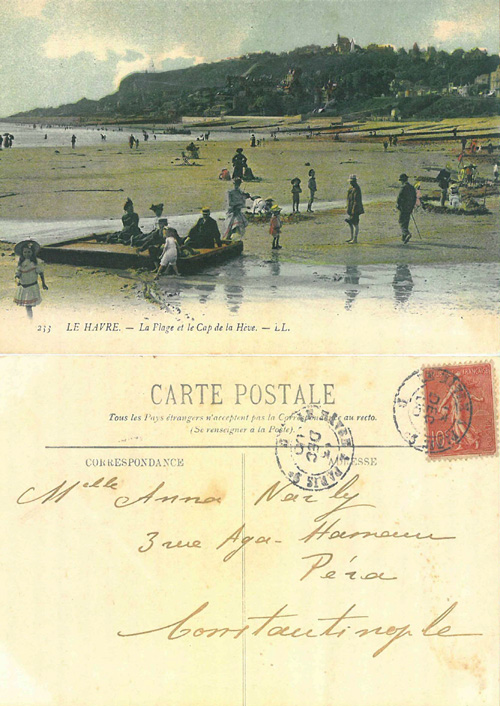 233 LE HAVRE. — La Plage et le Cap de la Hève. — LL.
CARTE POSTALE
Tous les Pays étrangers n'acceptent pas la Correspondance au recto.
(Se renseigner a la Poste).
CORRESPONDANCE
ADRESSE
LE HAVRE A PARIS
DEC
Melle Anna
3 rue Aga-Hamam
Péra
Constantinople